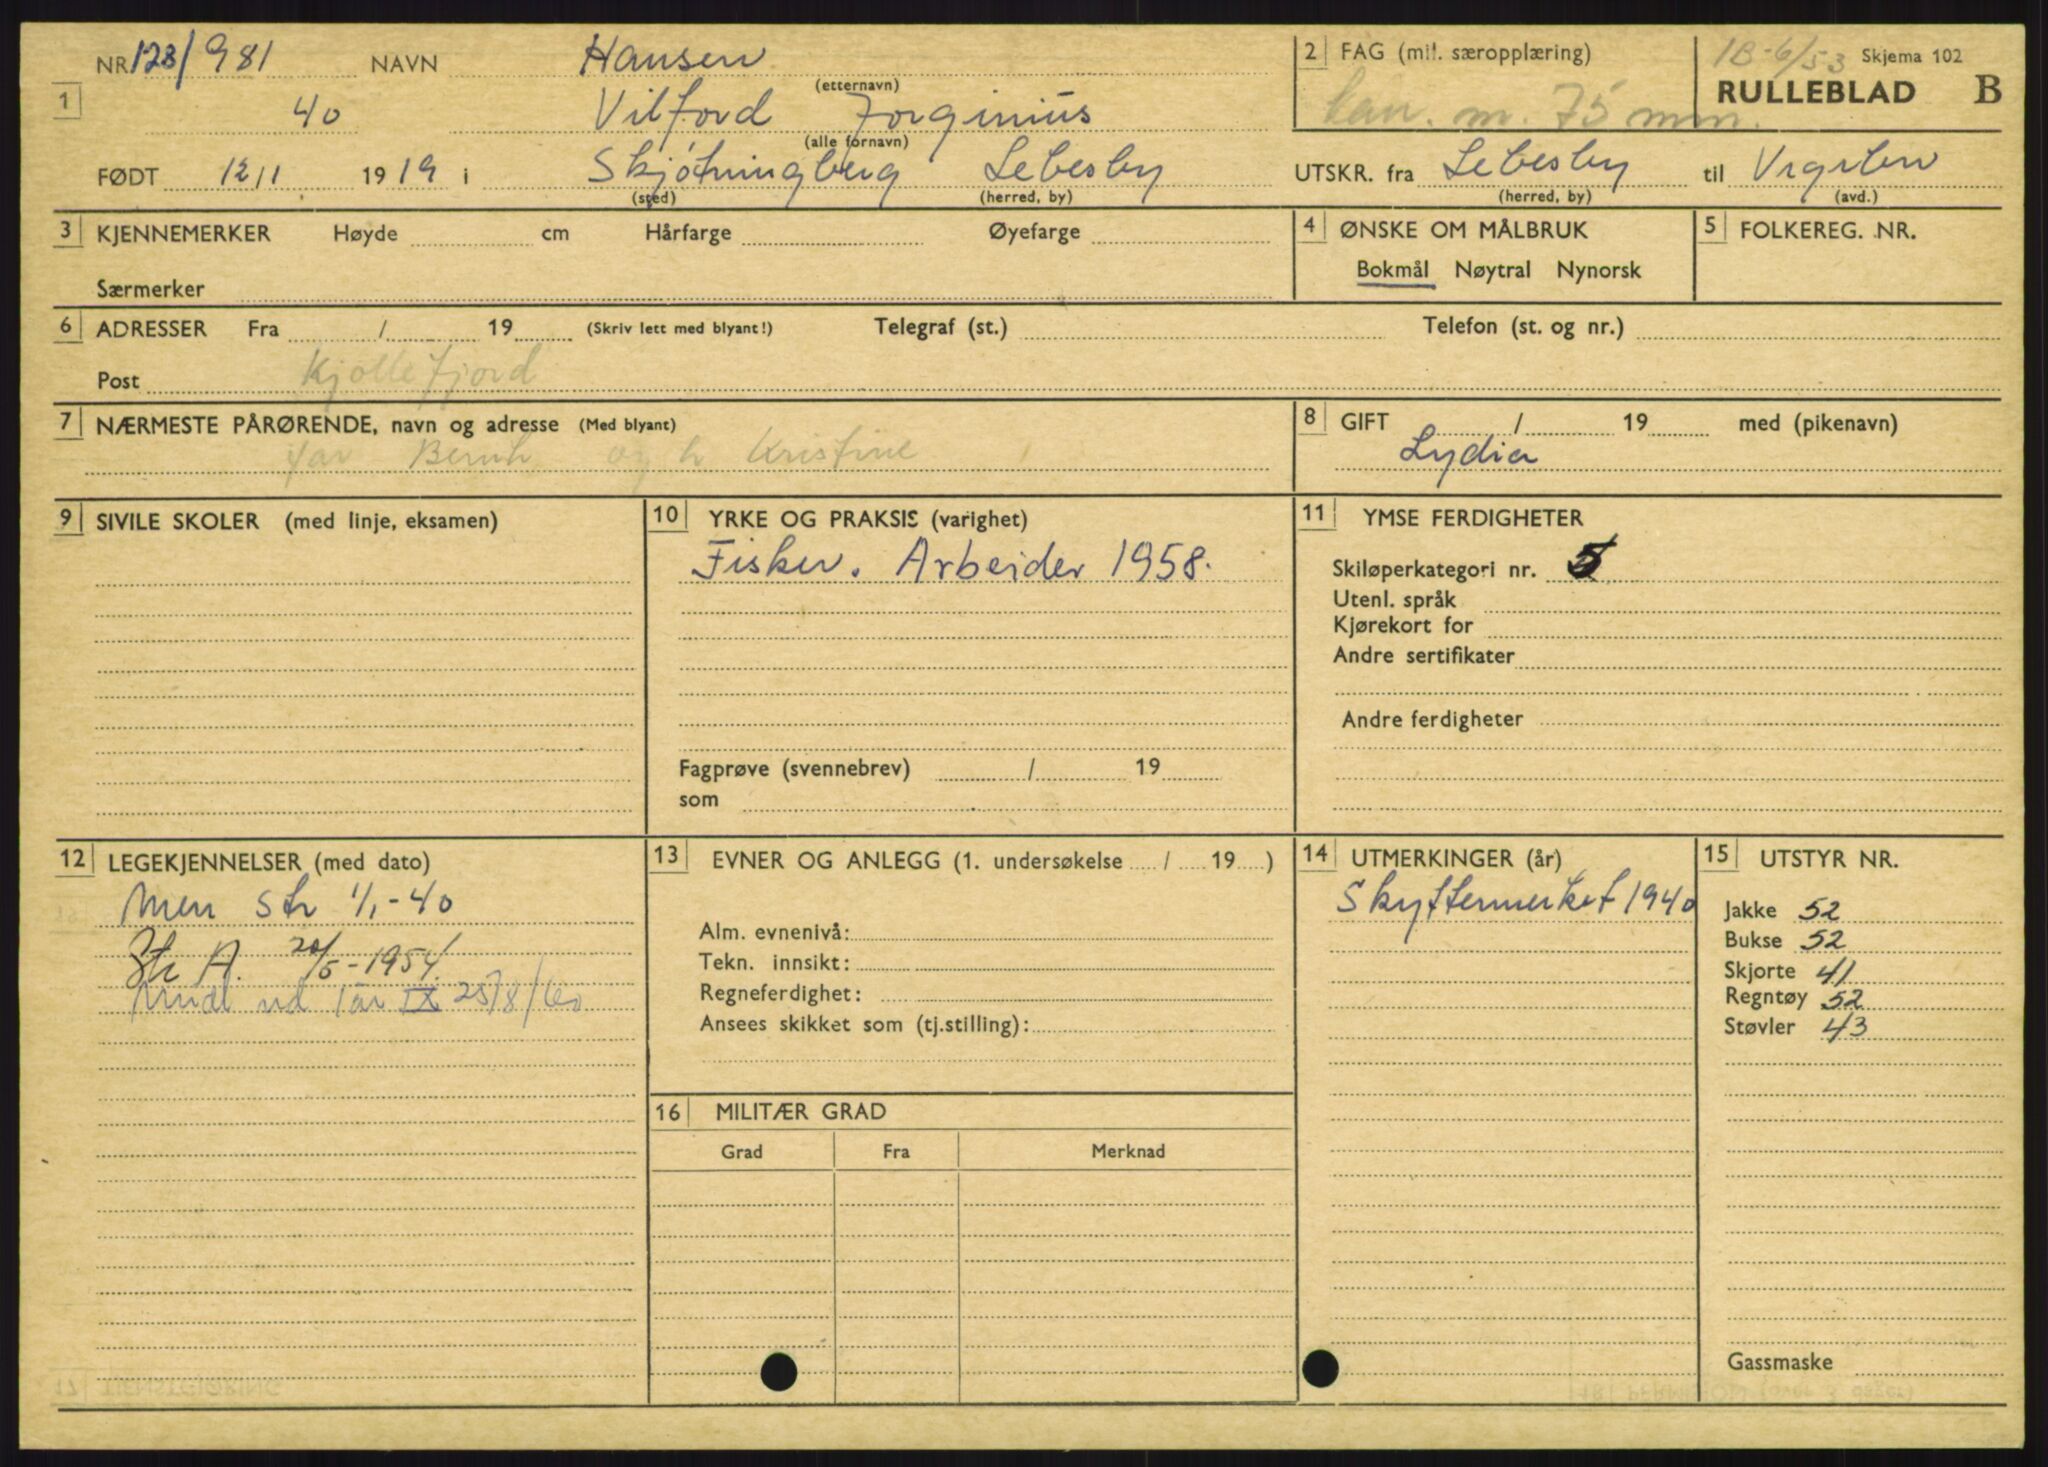 NR 123/981 NAVN Hansen
(etternavn)
1 40 Vilford Jorginius
(alle fornavn)
FØDT 12/1 1919 i Skjøtningberg Lebesby
(sted) (herred, by)
2 FAG (mil. særopplæring)
kan. m. 75 mm.
1B-6/53 Skjema 102
RULLEBLAD B
UTSKR. fra Lebesby til
(herred, by) (avd.)
3 KJENNEMERKER Høyde cm Hårfarge Øyefarge
Særmerker
4 ØNSKE OM MÅLBRUK
Bokmål Nøytral Nynorsk
5 FOLKEREG. NR.
6 ADRESSER Fra / 19 (Skriv lett med blyant!) Telegraf (st.) Telefon (st. og nr.)
Post Kjøllefjord
7 NÆRMESTE PÅRØRENDE, navn og adresse (Med blyant)
far Bernh og h Kristine
8 GIFT / 19 med (pikenavn)
Lydia
9 SIVILE SKOLER (med linje, eksamen)
10 YRKE OG PRAKSIS (varighet)
Fisker. Arbeider 1958.
Fagprøve (svennebrev) / 19
som
11 YMSE FERDIGHETER
Skiløperkategori nr. 5
Utenl. språk
Kjørekort for
Andre sertifikater
Andre ferdigheter
12 LEGEKJENNELSER (med dato)
Men str 1/1-40
Str A. 20/5-1954.
ud 1 år IX 25/8/60
13 EVNER OG ANLEGG (1. undersøkelse / 19 )
Alm. evnenivå:
Tekn. innsikt:
Regneferdighet:
Ansees skikket som (tj.stilling):
14 UTMERKINGER (år)
Skyttermerket 1940
15 UTSTYR NR.
Jakke 52
Bukse 52
Skjorte 41
Regntøy 52
Støvler 43
Gassmaske
16 MILITÆR GRAD
Grad Fra Merknad